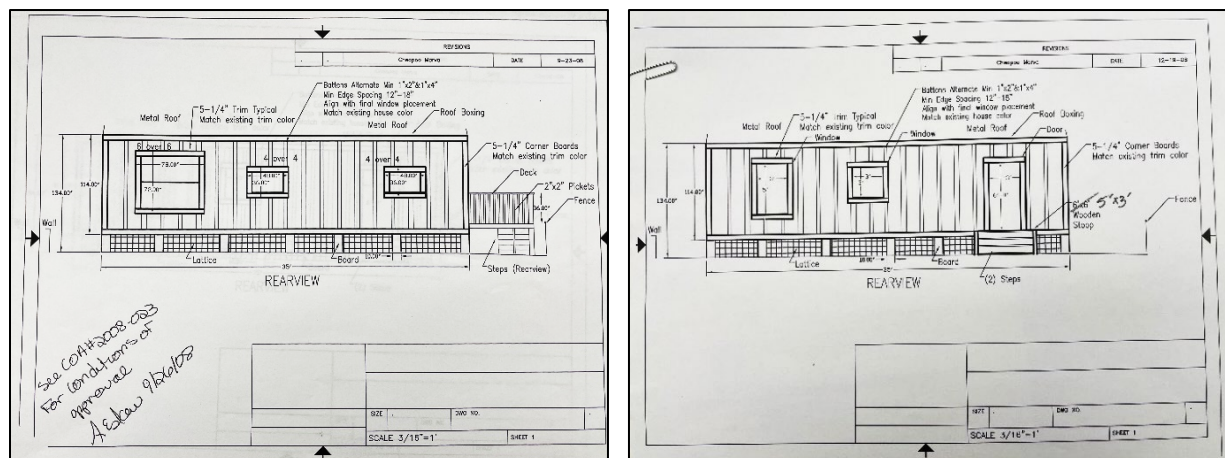 REVISIONS
Cheapas Morva DATE 9-23-08
Battons Alternate Min 1"x2"&1"x4"
Min Edge Spacing 12"-18"
Align with final window placement
Match existing house color
5-1/4" Trim Typical
Match existing trim color
Metal Roof
Metal Roof
Roof Boxing
5-1/4" Corner Boards
Match existing trim color
6 over 6
4 over 4
4 over 4
78.00"
72.00"
36.00"
36.00"
134.00"
114.00"
Deck
2"x2" Pickets
36.00"
Fence
Wall
Lattice
Board
Steps (Rearview)
35'
REARVIEW
See COA#2008-023
For conditions of
approval
9/26/08
SIZE DWG NO.
SCALE 3/16"=1' SHEET 1
REVISIONS
Cheapas Morva DATE 12-19-08
Battons Alternate Min 1"x2"&1"x4"
Min Edge Spacing 12"-18"
Align with final window placement
Match existing house color
Metal Roof
5-1/4" Trim Typical
Match existing trim color
Window
Window
Metal Roof
Roof Boxing
Door
5-1/4" Corner Boards
Match existing trim color
134.00"
114.00"
Wall
6'x6'
5'x3'
Wooden
Stoop
Fence
Lattice
Board
35'
REARVIEW
(2) Steps
SIZE DWG NO.
SCALE 3/16"=1' SHEET 1